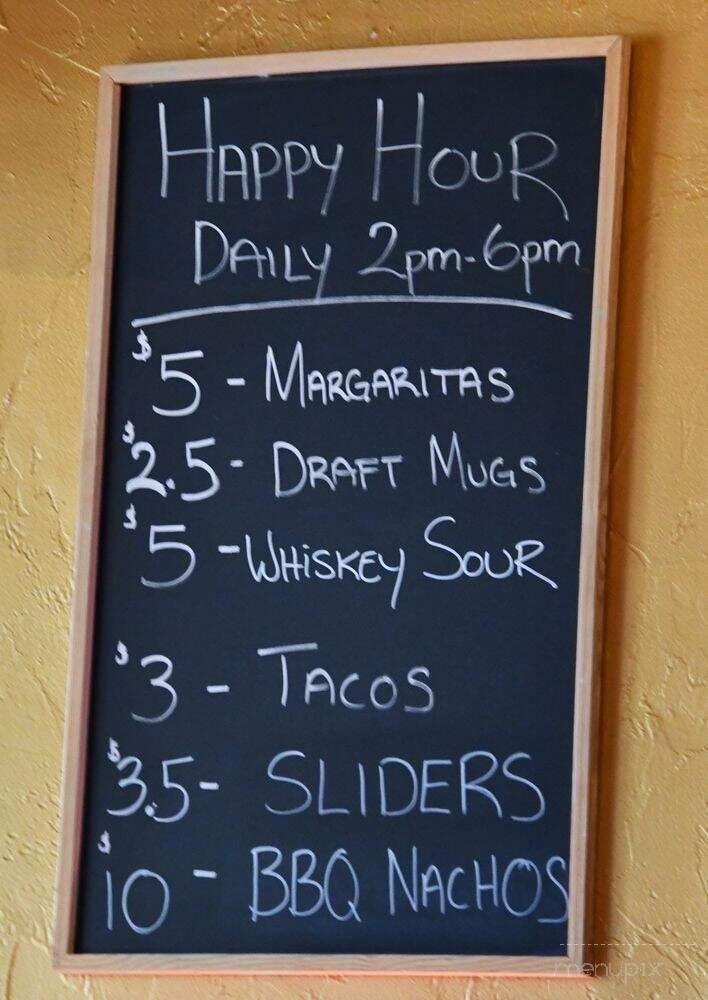 HAPPY HOUR
DAILY 2pm-6pm
$5 - MARGARITAS
$2.5 - DRAFT MUGS
$5 - WHiSKEY SOUR
$3 - TACOS
$3.5 - SLIDERS
$10 - BBQ NACHOS
menupix